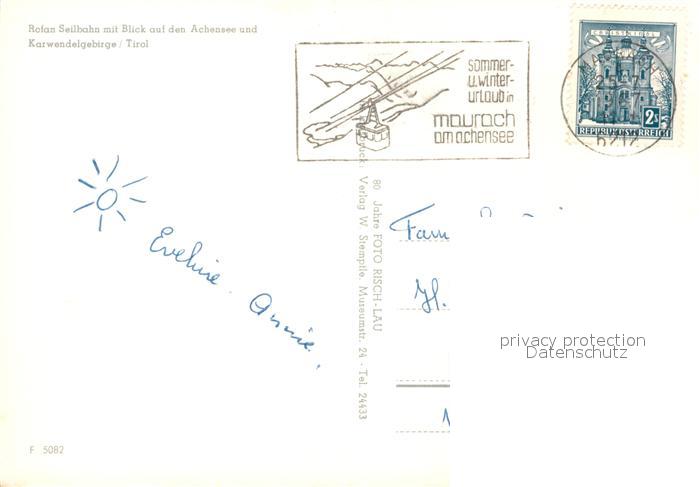 Rofan Seilbahn mit Blick auf den Achensee und
Karwendelgebirge / Tirol
sommer-
u. winter-
urlaub in
maurach
am achensee
CHRISTKINDL
2s
REPUBLIK ÖSTERREICH
6212
80 Jahre FOTO RISCH-LAU
Verlag W. Stempfle, Museumstr. 24 - Tel. 24433
Eveline. Annie.
Fam
H.
privacy protection
Datenschutz
F 5082